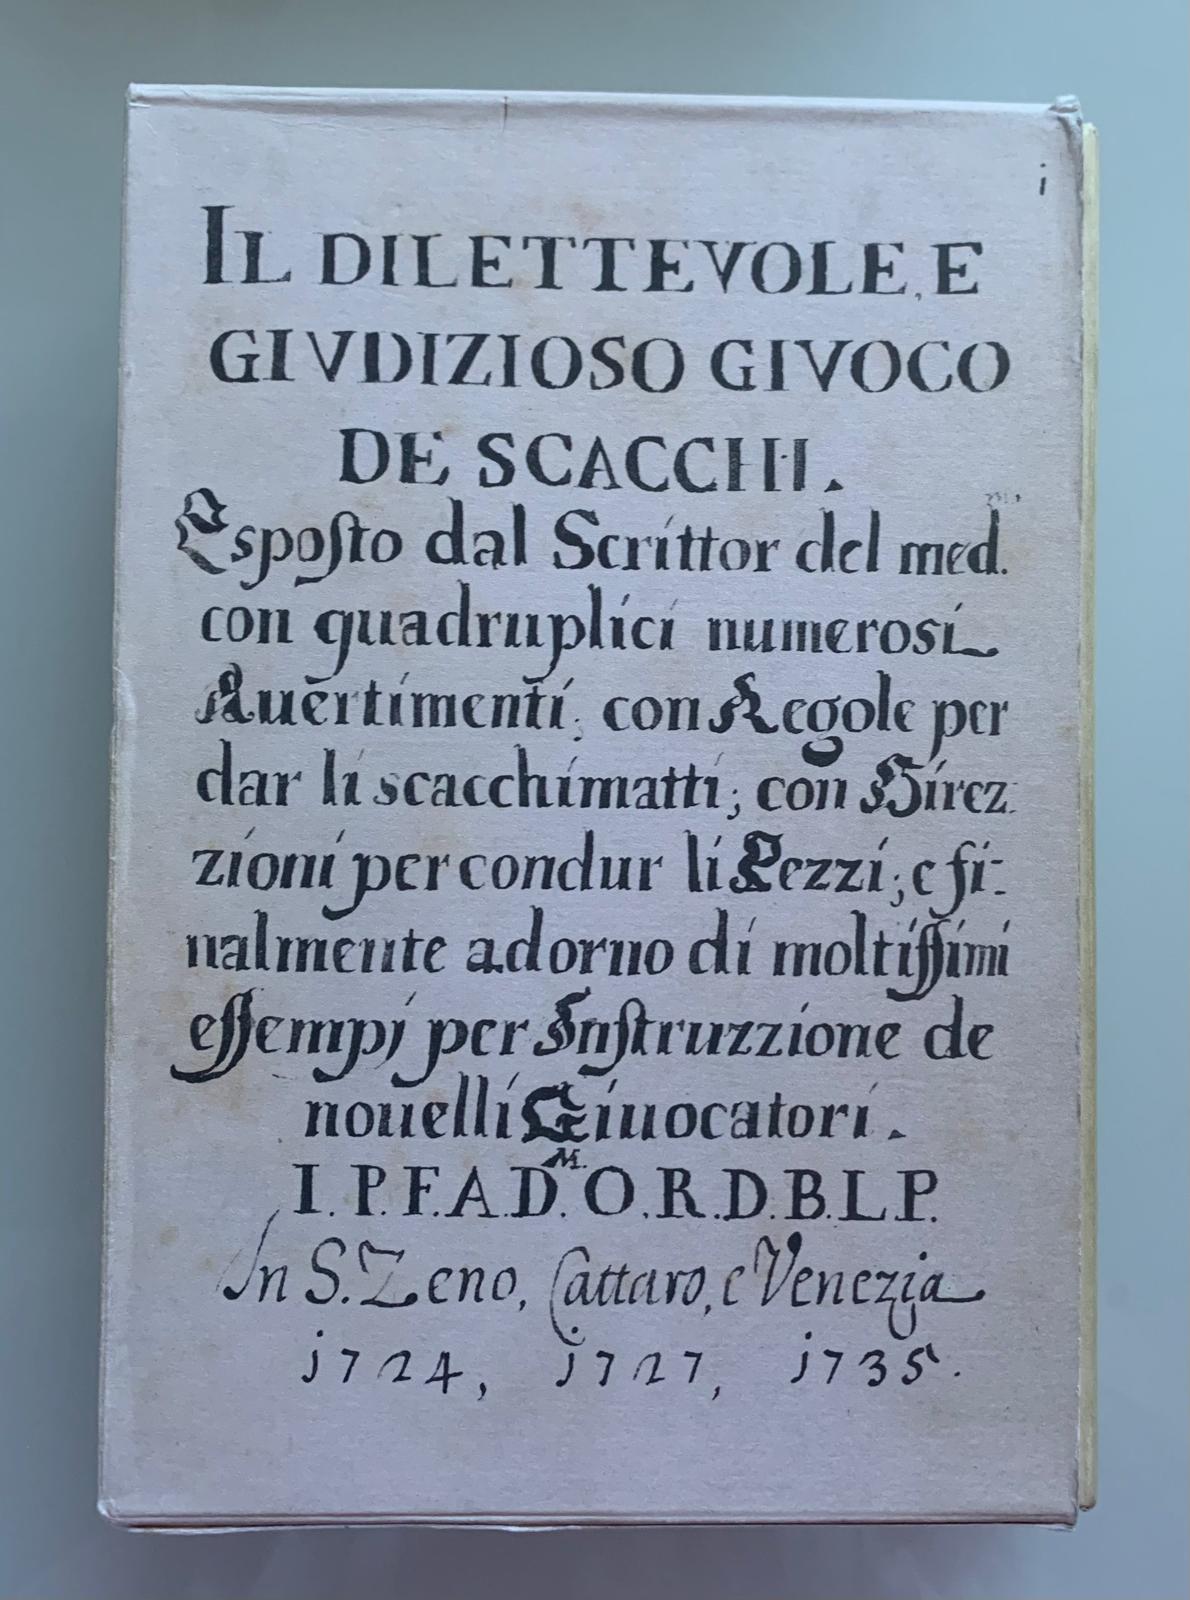 i
IL DILETTEVOLE, E
GIVDIZIOSO GIVOCO
DE SCACCHI.
Esposto dal Scrittor del med.
con quadruplici numerosi
Auertimenti; con Regole per
dar li scacchimatti; con Direz
zioni per condur li Pezzi; e fi-
nalmente adorno di moltissimi
essempi per Instruzzione de
nouelli Giuocatori.
I.P.F.A.D.M.O.R.D.B.L.P.
In S. Zeno, Cattaro, e Venezia
1724, 1727, 1735.